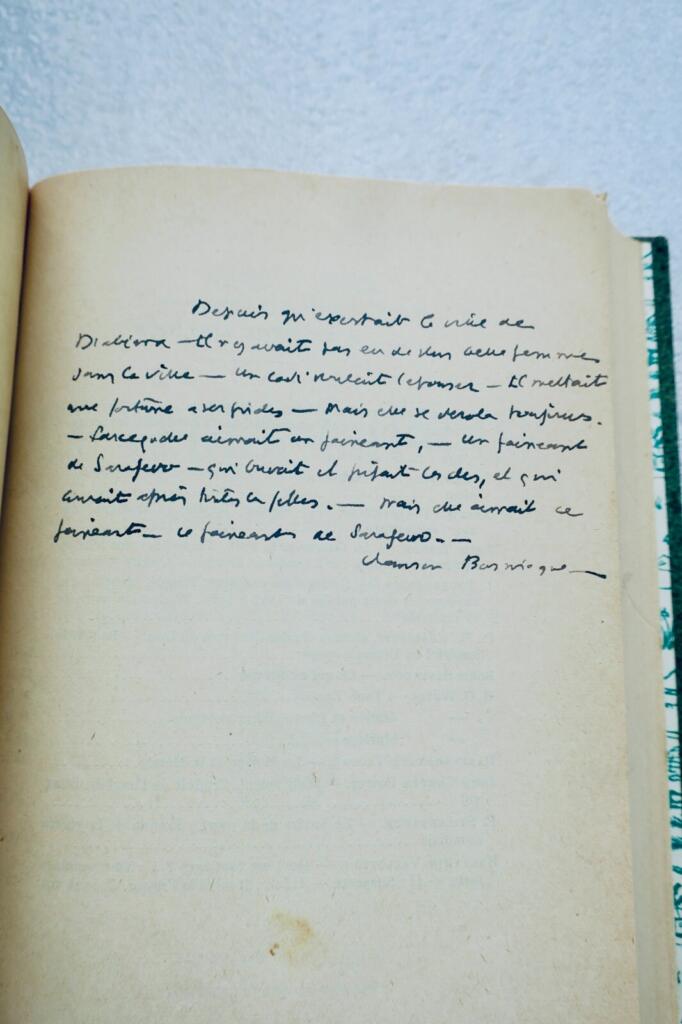 Depuis qu'existait la ville de
il n'y avait pas eu de plus belle femme
dans la ville — un cadi voulait l'épouser — Il mettait
une fortune à ses pieds — Mais elle se déroba toujours.
— aimait un fainéant, — un fainéant
de Sarajevo — qui buvait et les, et qui
avait après toutes les filles. — Mais elle aimait ce
fainéant — ce fainéant de Sarajevo. —
Chanson Bosniaque —